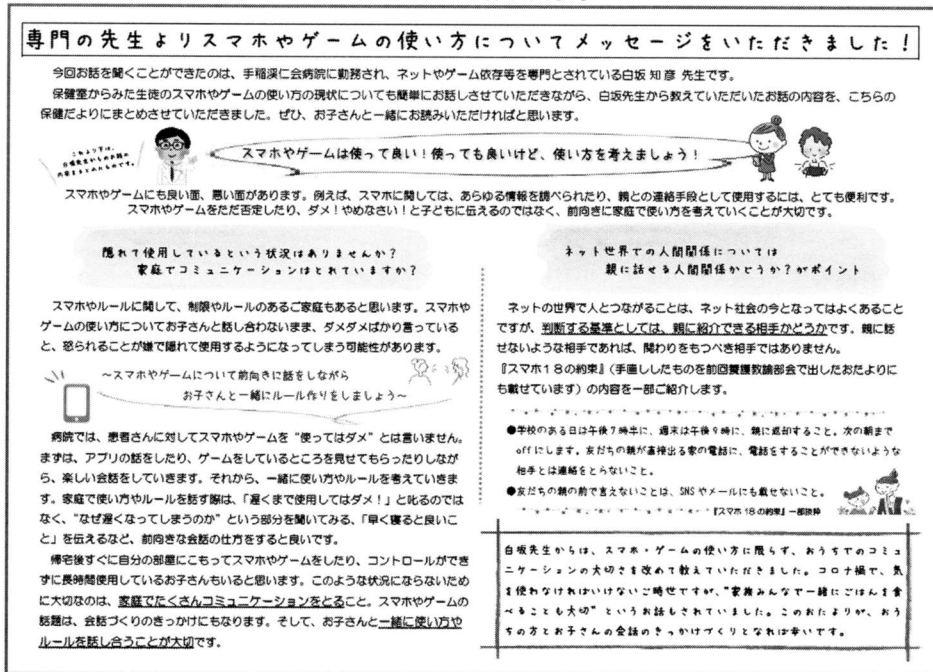 専門の先生よりスマホやゲームの使い方についてメッセージをいただきました！
今回お話を聞くことができたのは、手稲渓仁会病院に勤務され、ネットやゲーム依存等を専門とされている白坂 知彦 先生です。
保健室からみた生徒のスマホやゲームの使い方の現状についても簡単にお話しさせていただきながら、白坂先生から教えていただいたお話の内容を、こちらの
保健だよりにまとめさせていただきました。ぜひ、お子さんと一緒にお読みいただければと思います。
これより下は、
白坂先生からのお話の
内容まとめたものです。
スマホやゲームは使って良い！使っても良いけど、使い方を考えましょう！
スマホやゲームにも良い面、悪い面があります。例えば、スマホに関しては、あらゆる情報を調べられたり、親との連絡手段として使用するには、とても便利です。
スマホやゲームをただ否定したり、ダメ！やめなさい！と子どもに伝えるのではなく、前向きに家庭で使い方を考えていくことが大切です。
隠れて使用しているという状況はありませんか？
家庭でコミュニケーションはとれていますか？
スマホやルールに関して、制限やルールのあるご家庭もあると思います。スマホや
ゲームの使い方についてお子さんと話し合わないまま、ダメダメばかり言っている
と、怒られることが嫌で隠れて使用するようになってしまう可能性があります。
～スマホやゲームについて前向きに話をしながら
お子さんと一緒にルール作りをしましょう～
病院では、患者さんに対してスマホやゲームを“使ってはダメ”とは言いません。
まずは、アプリの話をしたり、ゲームをしているところを見せてもらったりしなが
ら、楽しい会話をしていきます。それから、一緒に使い方やルールを考えていきま
す。家庭で使い方やルールを話す際は、「遅くまで使用してはダメ！」と叱るのでは
なく、“なぜ遅くなってしまうのか”という部分を聞いてみる、「早く寝ると良いこ
と」を伝えるなど、前向きな会話の仕方をすると良いです。
帰宅後すぐに自分の部屋にこもってスマホやゲームをしたり、コントロールができ
ずに長時間使用しているお子さんもいると思います。このような状況にならないため
に大切なのは、家庭でたくさんコミュニケーションをとること。スマホやゲームの
話題は、会話づくりのきっかけにもなります。そして、お子さんと一緒に使い方や
ルールを話し合うことが大切です。
ネット世界での人間関係については
親に話せる人間関係かどうか？がポイント
ネットの世界で人とつながることは、ネット社会の今となってはよくあること
ですが、判断する基準としては、親に紹介できる相手かどうかです。親に話
せないような相手であれば、関わりをもつべき相手ではありません。
『スマホ１８の約束』（手直ししたものを前回養護教諭部会で出したおたよりに
も載せています）の内容を一部ご紹介します。
●学校のある日は午後7時半に、週末は午後9時に、親に返却すること。次の朝まで
offにします。友だちの親が直接出る家の電話に、電話をすることができないような
相手とは連絡をとらないこと。
●友だちの親の前で言えないことは、SNSやメールにも載せないこと。
『スマホ18の約束』一部抜粋
白坂先生からは、スマホ・ゲームの使い方に限らず、おうちでのコミュ
ニケーションの大切さを改めて教えていただきました。コロナ禍で、気
を使わなければいけないご時世ですが、“家族みんなで一緒にごはんを食
べることも大切”というお話もされていました。このおたよりが、おう
ちの方とお子さんの会話のきっかけづくりとなれば幸いです。